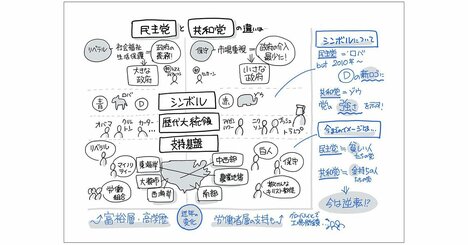 民主党 と 共和党 の違いは
リベラル
社会福祉
生活保障
政府の
義務!
大きな
政府
保守
市場重視
政府の介入
最少に!
小さな
政府
シンボル
青
D
赤
歴代大統領
オバマ
クリントン
カーター
トランプ
支持基盤
リベラル
マイノリティー
東海岸
大都市
西海岸
労働
組合
中西部
農業地帯
南部
白人
保守
キリスト教徒
↑富裕層・高学歴
近年の
変化
労働者層の支持も↗
シンボルについて
民主党 = ロバ
but 2010年〜
Dの新ロゴに
共和党 = ゾウ
党の強さを示す!
今までのイメージは…
民主党 = 貧しい人
たちの党
共和党 = 金持ちの人
たちの党
今は逆転!?